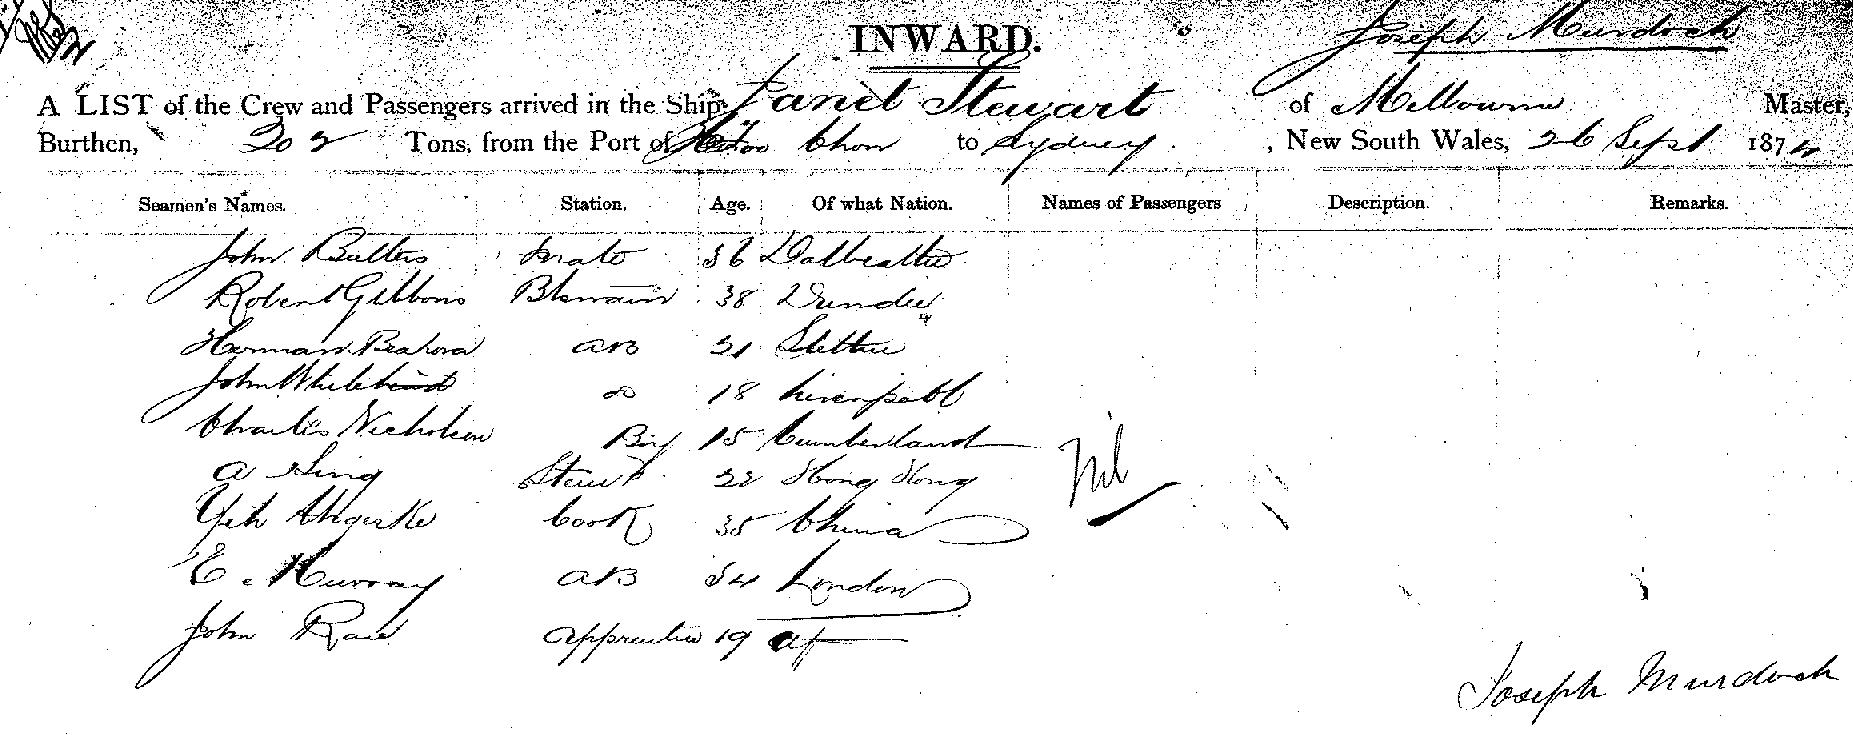 INWARD.
Joseph Murdoch
A LIST of the Crew and Passengers arrived in the Ship Janet Stewart of Melbourne Master,
Burthen, 202 Tons, from the Port of Foo Chow to Sydney , New South Wales, 26 Sept 1874
Seamen's Names. Station. Age. Of what Nation. Names of Passengers Description. Remarks.
John Butters Mate 36 Dalbeattie
Robert Gibbons Btswain 38 Dundee
Herman AB 21 Stettin
John 18 Liverpool
Charles Nicholson Boy 15 Cumberland
A Sing Stewd 22 Hong Kong
Yeh Cook 35 China
Nil
E. Murray AB 54 London
John Rae Apprentice 19
Joseph Murdoch